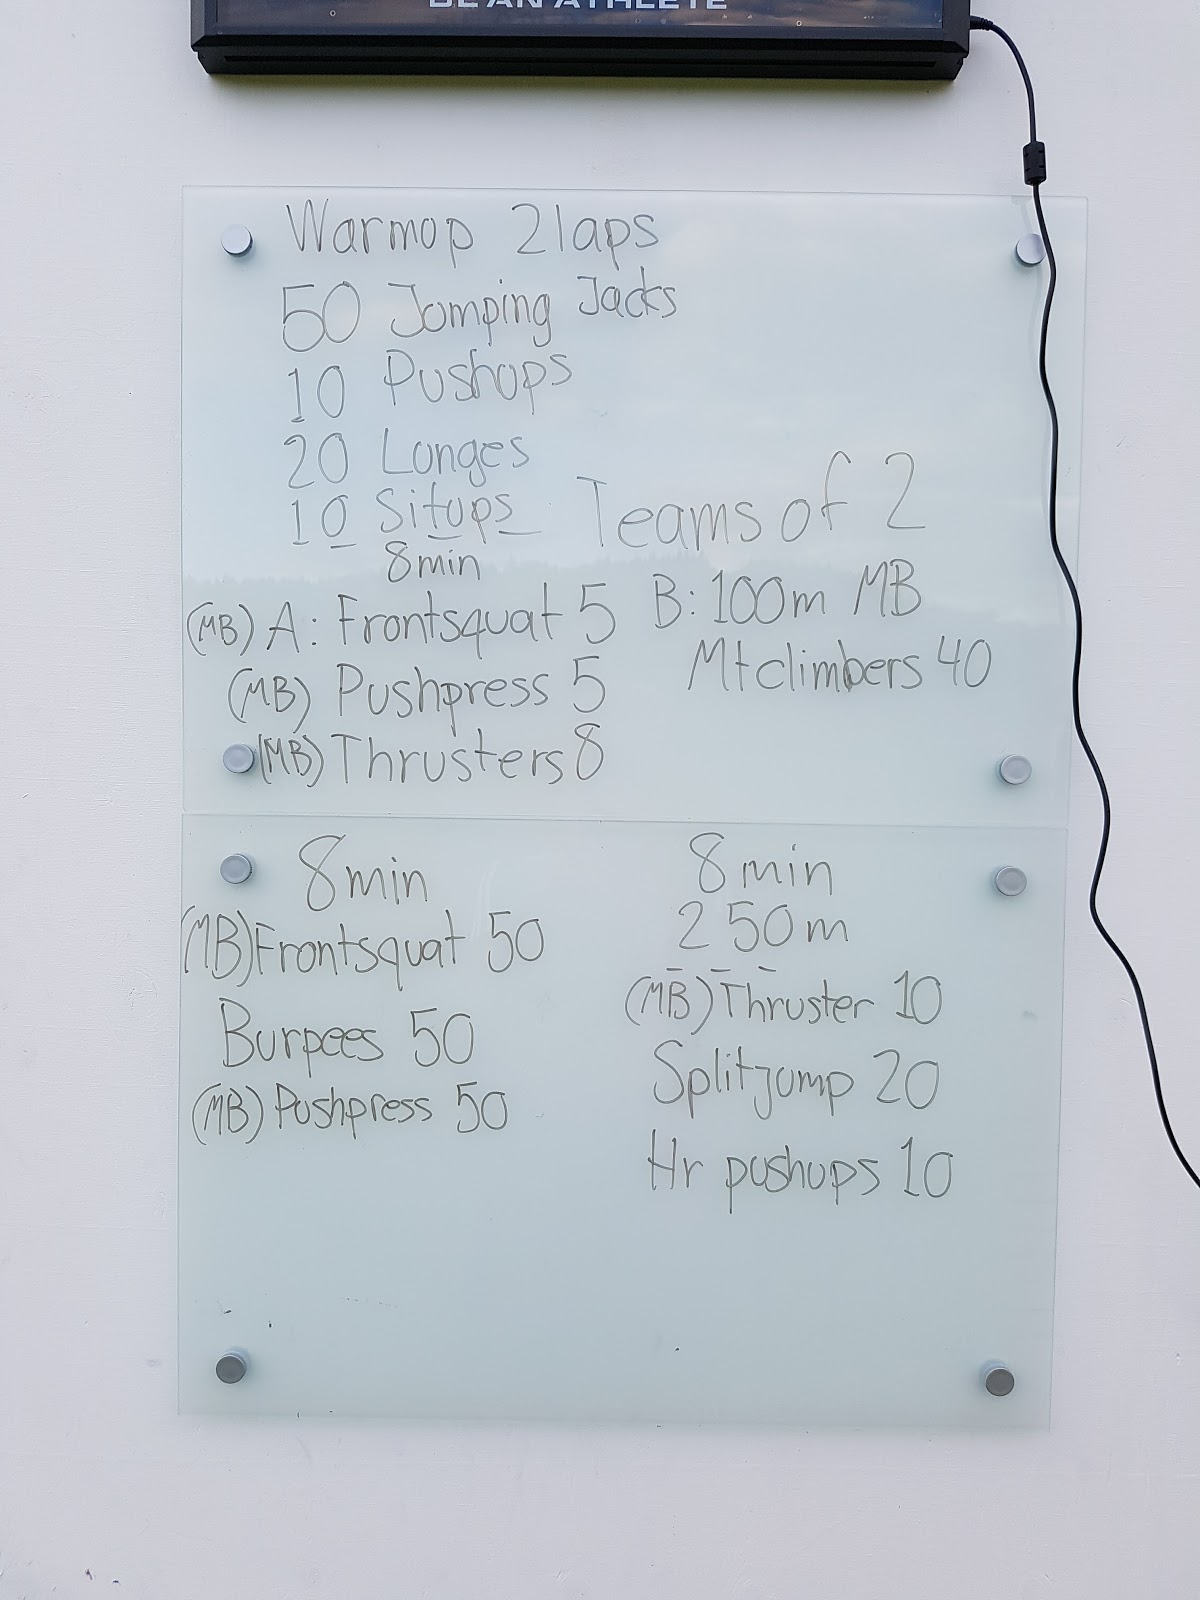 BE AN ATHLETE
Warmop 2 laps
50 Jomping Jacks
10 Pushops
20 Longes
10 Situps
Teams of 2
8min
(MB) A: Frontsquat 5
(MB) Pushpress 5
(MB) Thrusters 8
B: 100m MB
Mtclimbers 40
8min
(MB) Frontsquat 50
Burpees 50
(MB) Pushpress 50
8min
250m
(MB) Thruster 10
Splitjump 20
Hr pushups 10